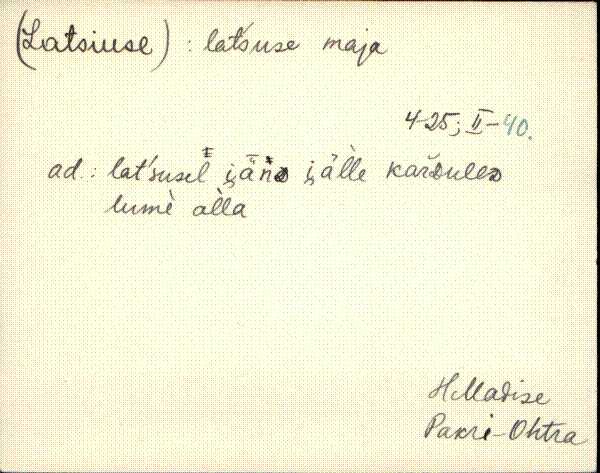 (Latsiuse) : lat́suse maja
4-25; II-40.
ad.: lat́susel i̯änᴅ i̯älle karšulᴇᴅ
lumè àlla
H. Madise
Pakri-Ohtra